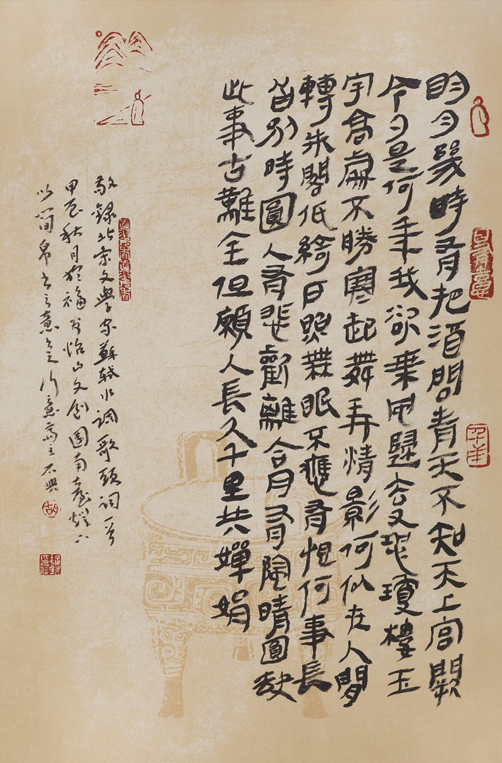 明月幾時有把酒問青天不知天上宮闕
今夕是何年我欲乘風歸去又恐瓊樓玉
宇高處不勝寒起舞弄情影何似在人間
轉朱閣低綺户照無眠不應有恨何事長
別時圓人有悲歡離合月有陰晴圓缺
此事古難全但願人長久千里共嬋娟
敬錄北宋文學家蘇軾水調歌頭詞一首
甲辰秋月於福州怡山文創園南臺燈下
以簡帛書之意之行意齋主石興